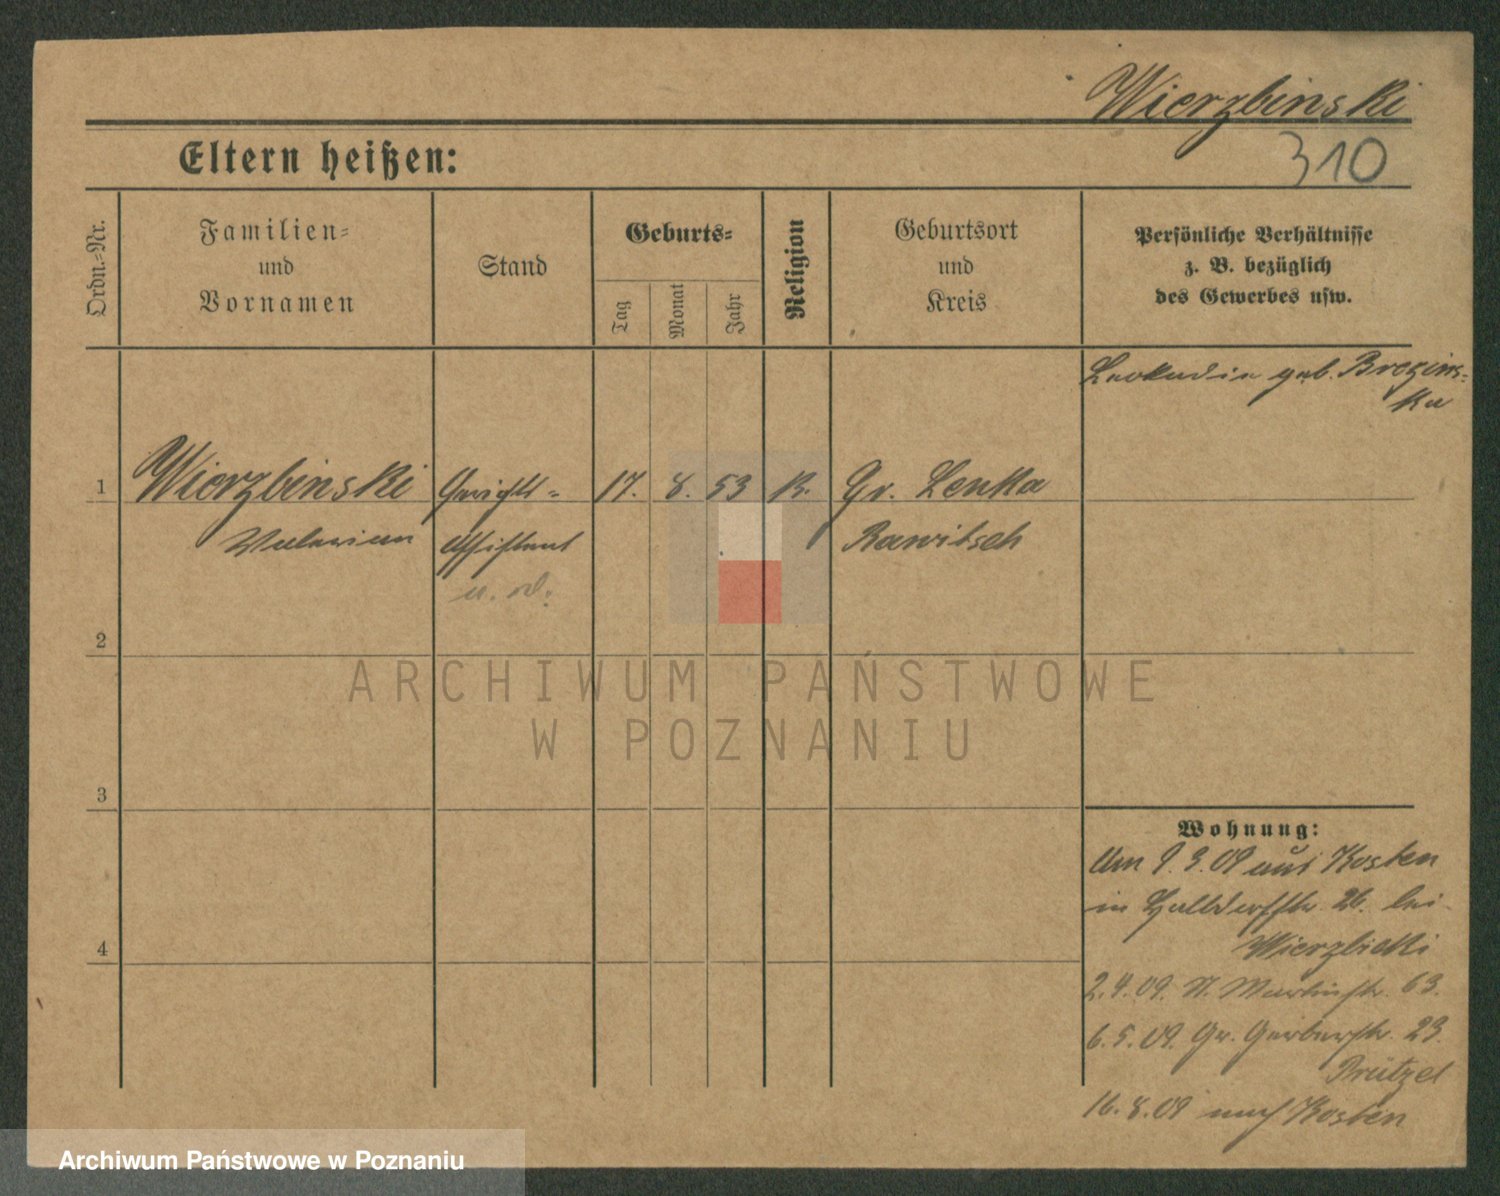 Wierzbinski
310
Eltern heißen:
Ordn.-Nr.
Familien-
und
Vornamen
Stand
Geburts-
Tag
Monat
Jahr
Religion
Geburtsort
und
Kreis
Persönliche Verhältnisse
z. B. bezüglich
des Gewerbes usw.
Leokadia geb. Brezins-
ka
1
Wierzbinski
Gerichts-
17.
8.
53
K.
Gr. Lenka
Valerian
Assistent
Rawitsch
a. D.
2
ARCHIWUM PAŃSTWOWE
W POZNANIU
3
Wohnung:
Am 9.3.09 aus Kosten
in Halldorfstr. 26. bei
Wierzbicki
4
2.4.09. St. Martinstr. 63.
6.5.09. Gr. Gerberstr. 23.
Brützel
16.8.09 nach Kosten
Archiwum Państwowe w Poznaniu